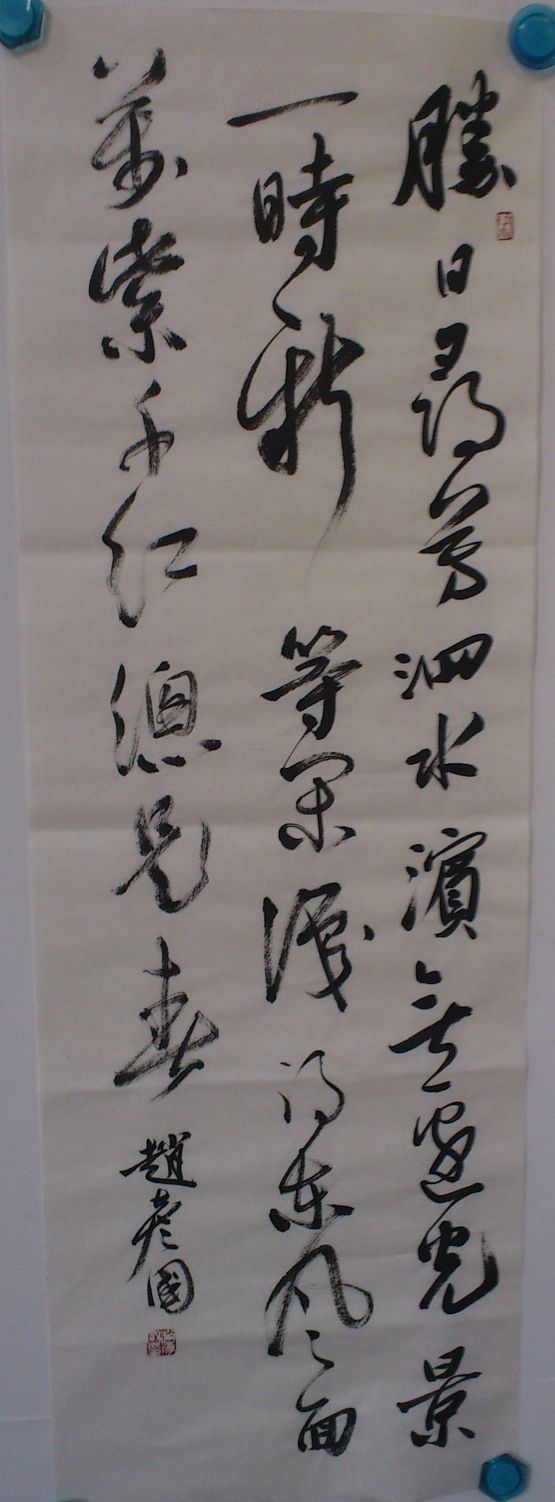 勝日尋芳泗水濱無邊光景
一時新等閑識得东风面
萬紫千红總是春
趙彦國